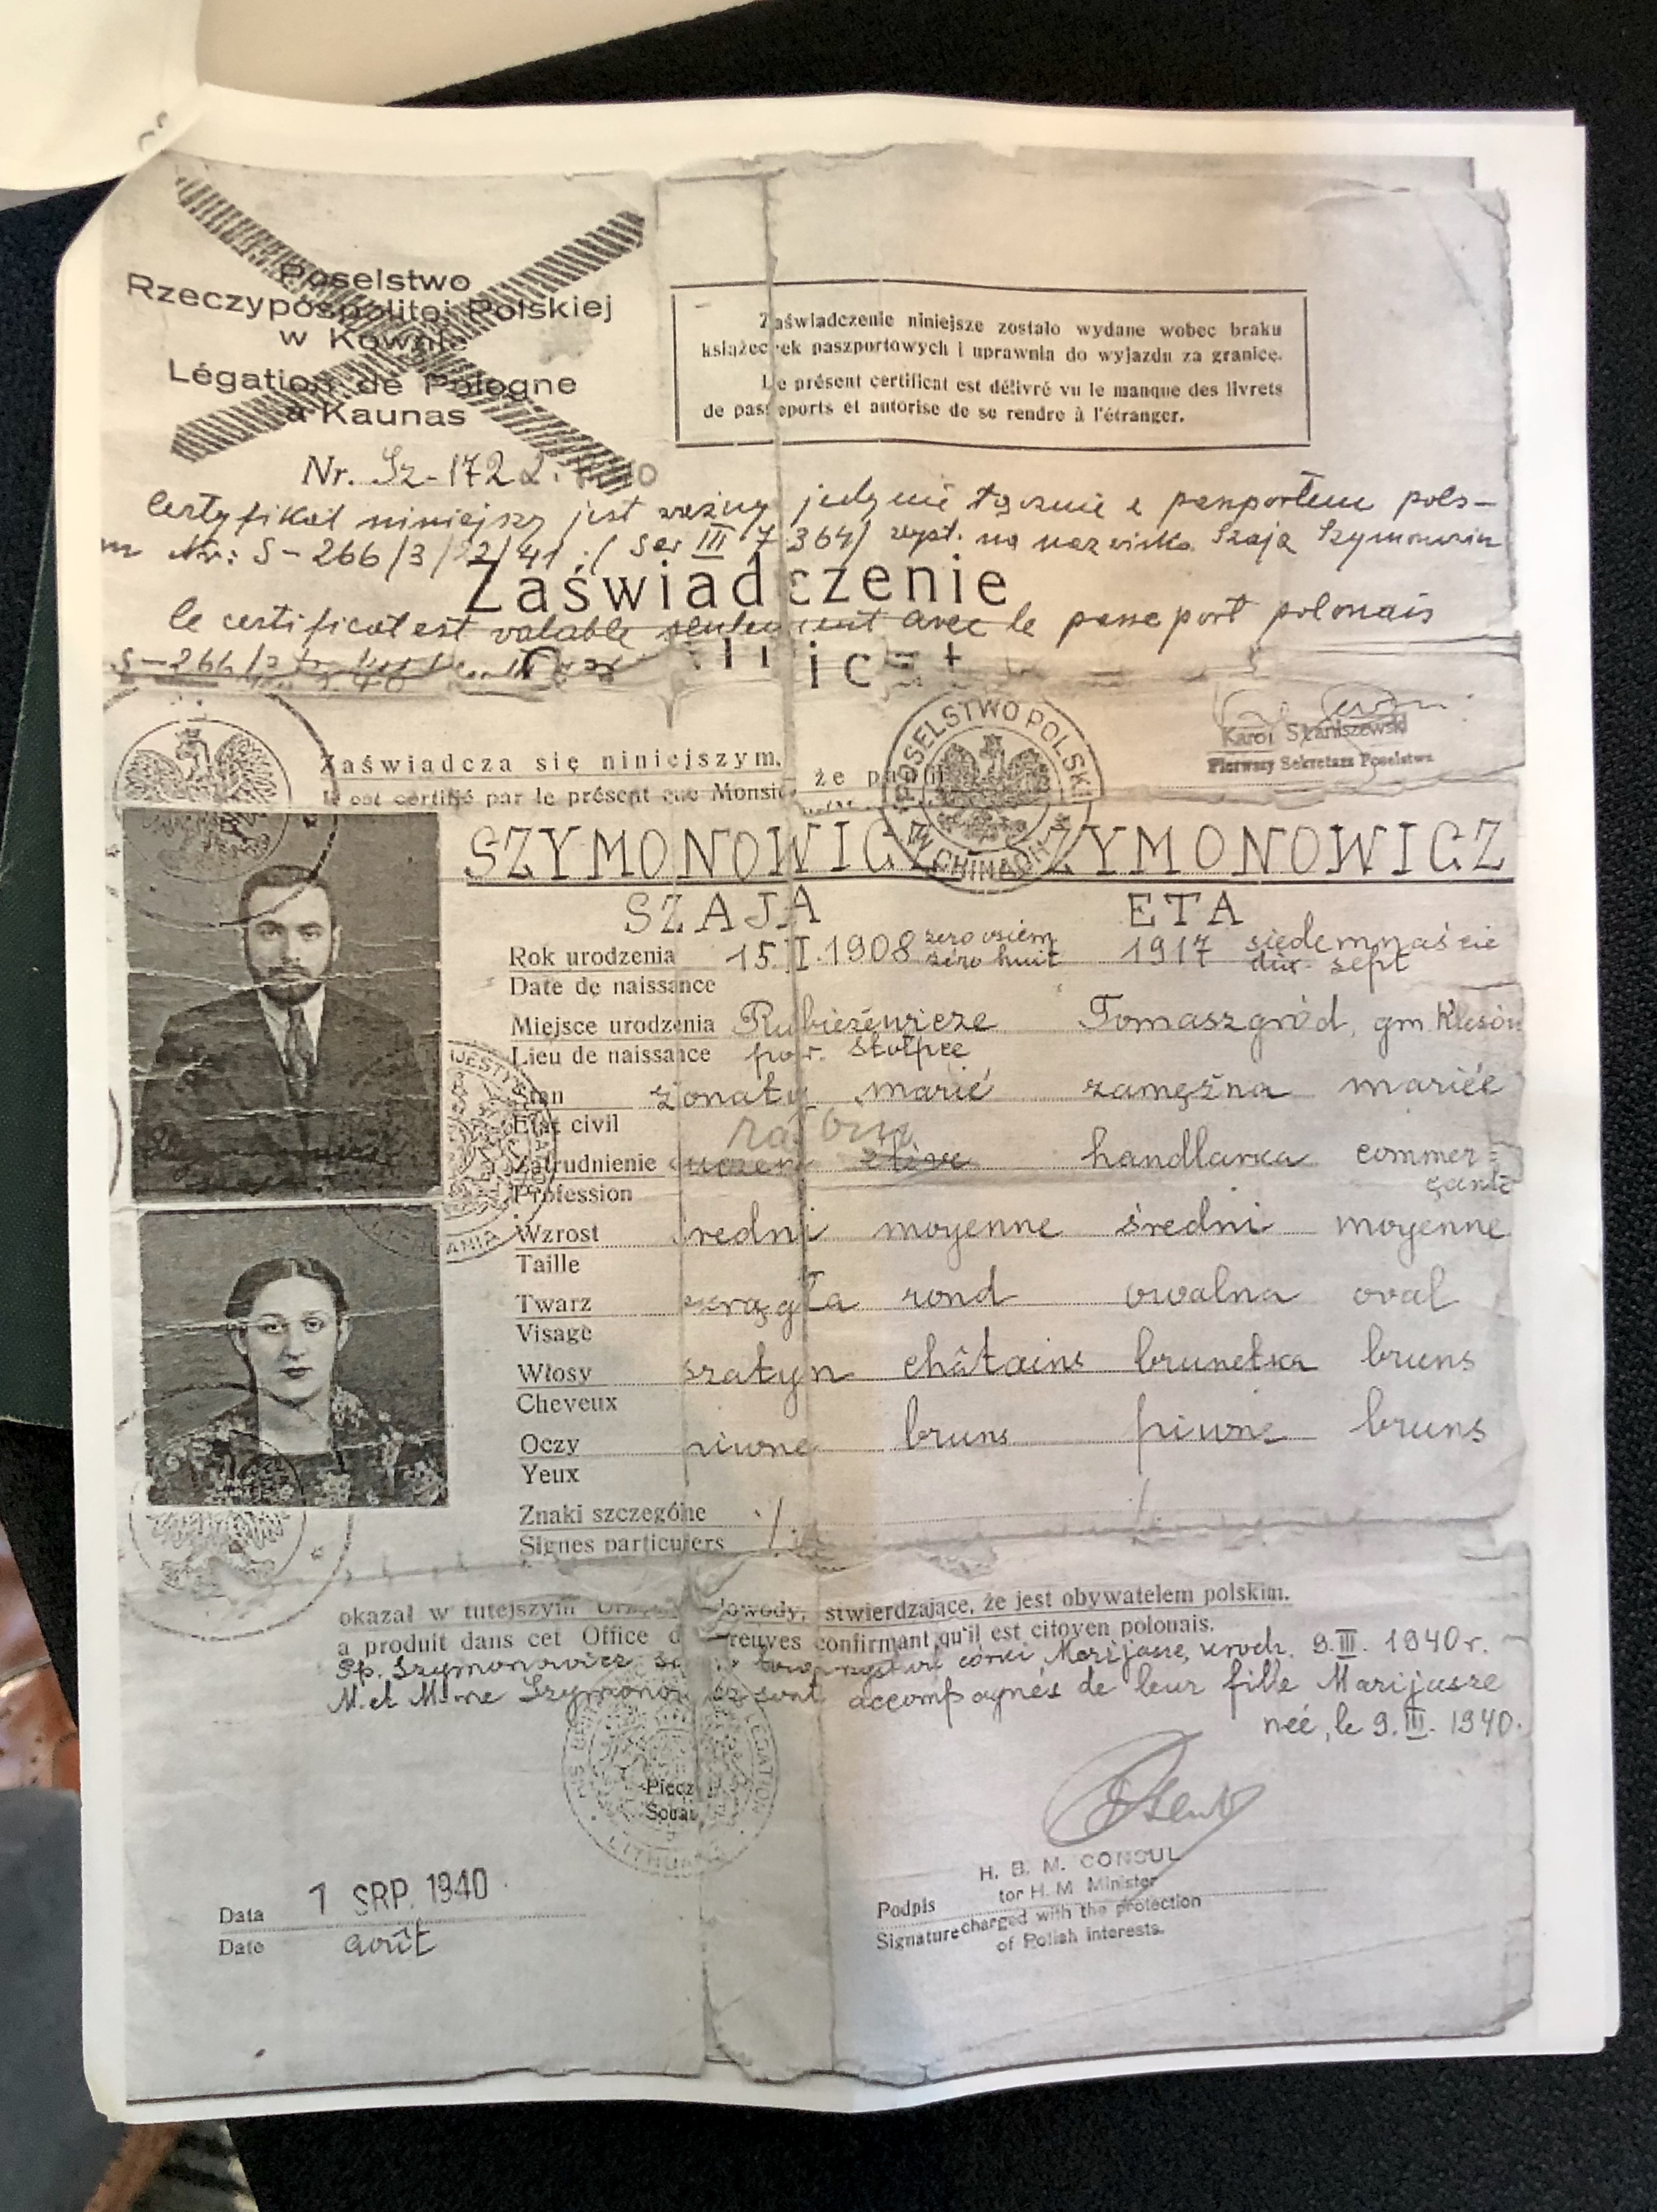 Poselstwo
Rzeczypospolitej Polskiej
w Kownie
Légation de Pologne
à Kaunas
Zaświadczenie niniejsze zostało wydane wobec braku
książeczek paszportowych i uprawnia do wyjazdu za granicę.
Le présent certificat est délivré vu le manque des livrets
de passeports et autorise de se rendre à l'étranger.
Nr. Sz-172
Certyfikat niniejszy jest ważny jedynie łącznie z paszportem pols-
Nr: S-266/3/22/41 :( Ser III 7364) wyst. na nazwisko Szaja Szymonowicz
Zaświadczenie
le certificat est valable seulement avec le passeport polonais
S-266/
POSELSTWO POLSKIE
W CHINACH
Karol Staniszewski
Pierwszy Sekretarz Poselstwa
Zaświadcza się niniejszym, że
Il est certifié par le présent que
SZYMONOWICZ SZYMONOWICZ
SZAJA ETA
Rok urodzenia 15.I.1908 zero osiem zéro huit 1917 siedemnaście dix-sept
Date de naissance
Miejsce urodzenia Rubieżewicze Tomaszgród, gm. Klesów
Lieu de naissance pow. Stołpce
Stan żonaty marié zamężna mariée
Etat civil
rabin
Zatrudnienie uczeń élève handlarka commer-
Profession çante
Wzrost średni moyenne średni moyenne
Taille
Twarz okrągła rond owalna oval
Visage
Włosy szatyn châtains brunetka bruns
Cheveux
Oczy piwne bruns piwne bruns
Yeux
Znaki szczególne ./.
Signes particuliers
okazał w tutejszym dowody, stwierdzające, że jest obywatelem polskim.
a produit dans cet Office preuves confirmant qu'il est citoyen polonais.
Sp. Szymonowicz córki Marijasze, urodz. 9.III. 1940 r.
M. et Mme Szymonowicz sont accompagnés de leur fille Marijasze
née, le 9.III. 1940.
LEGATION
LITHUANIA
Data 1 SRP. 1940
Date août
H. B. M. CONSUL
for H. M. Minister
Podpis
Signature charged with the protection
of Polish interests.